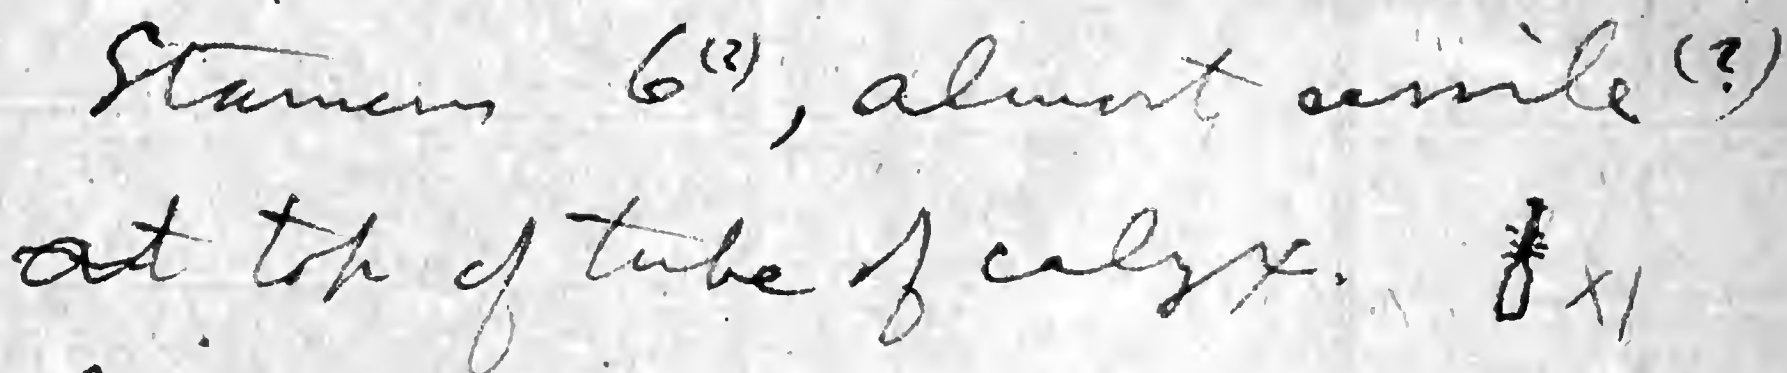 Stamens 6(?), almost sessile (?)
at top of tube of calyx. x1